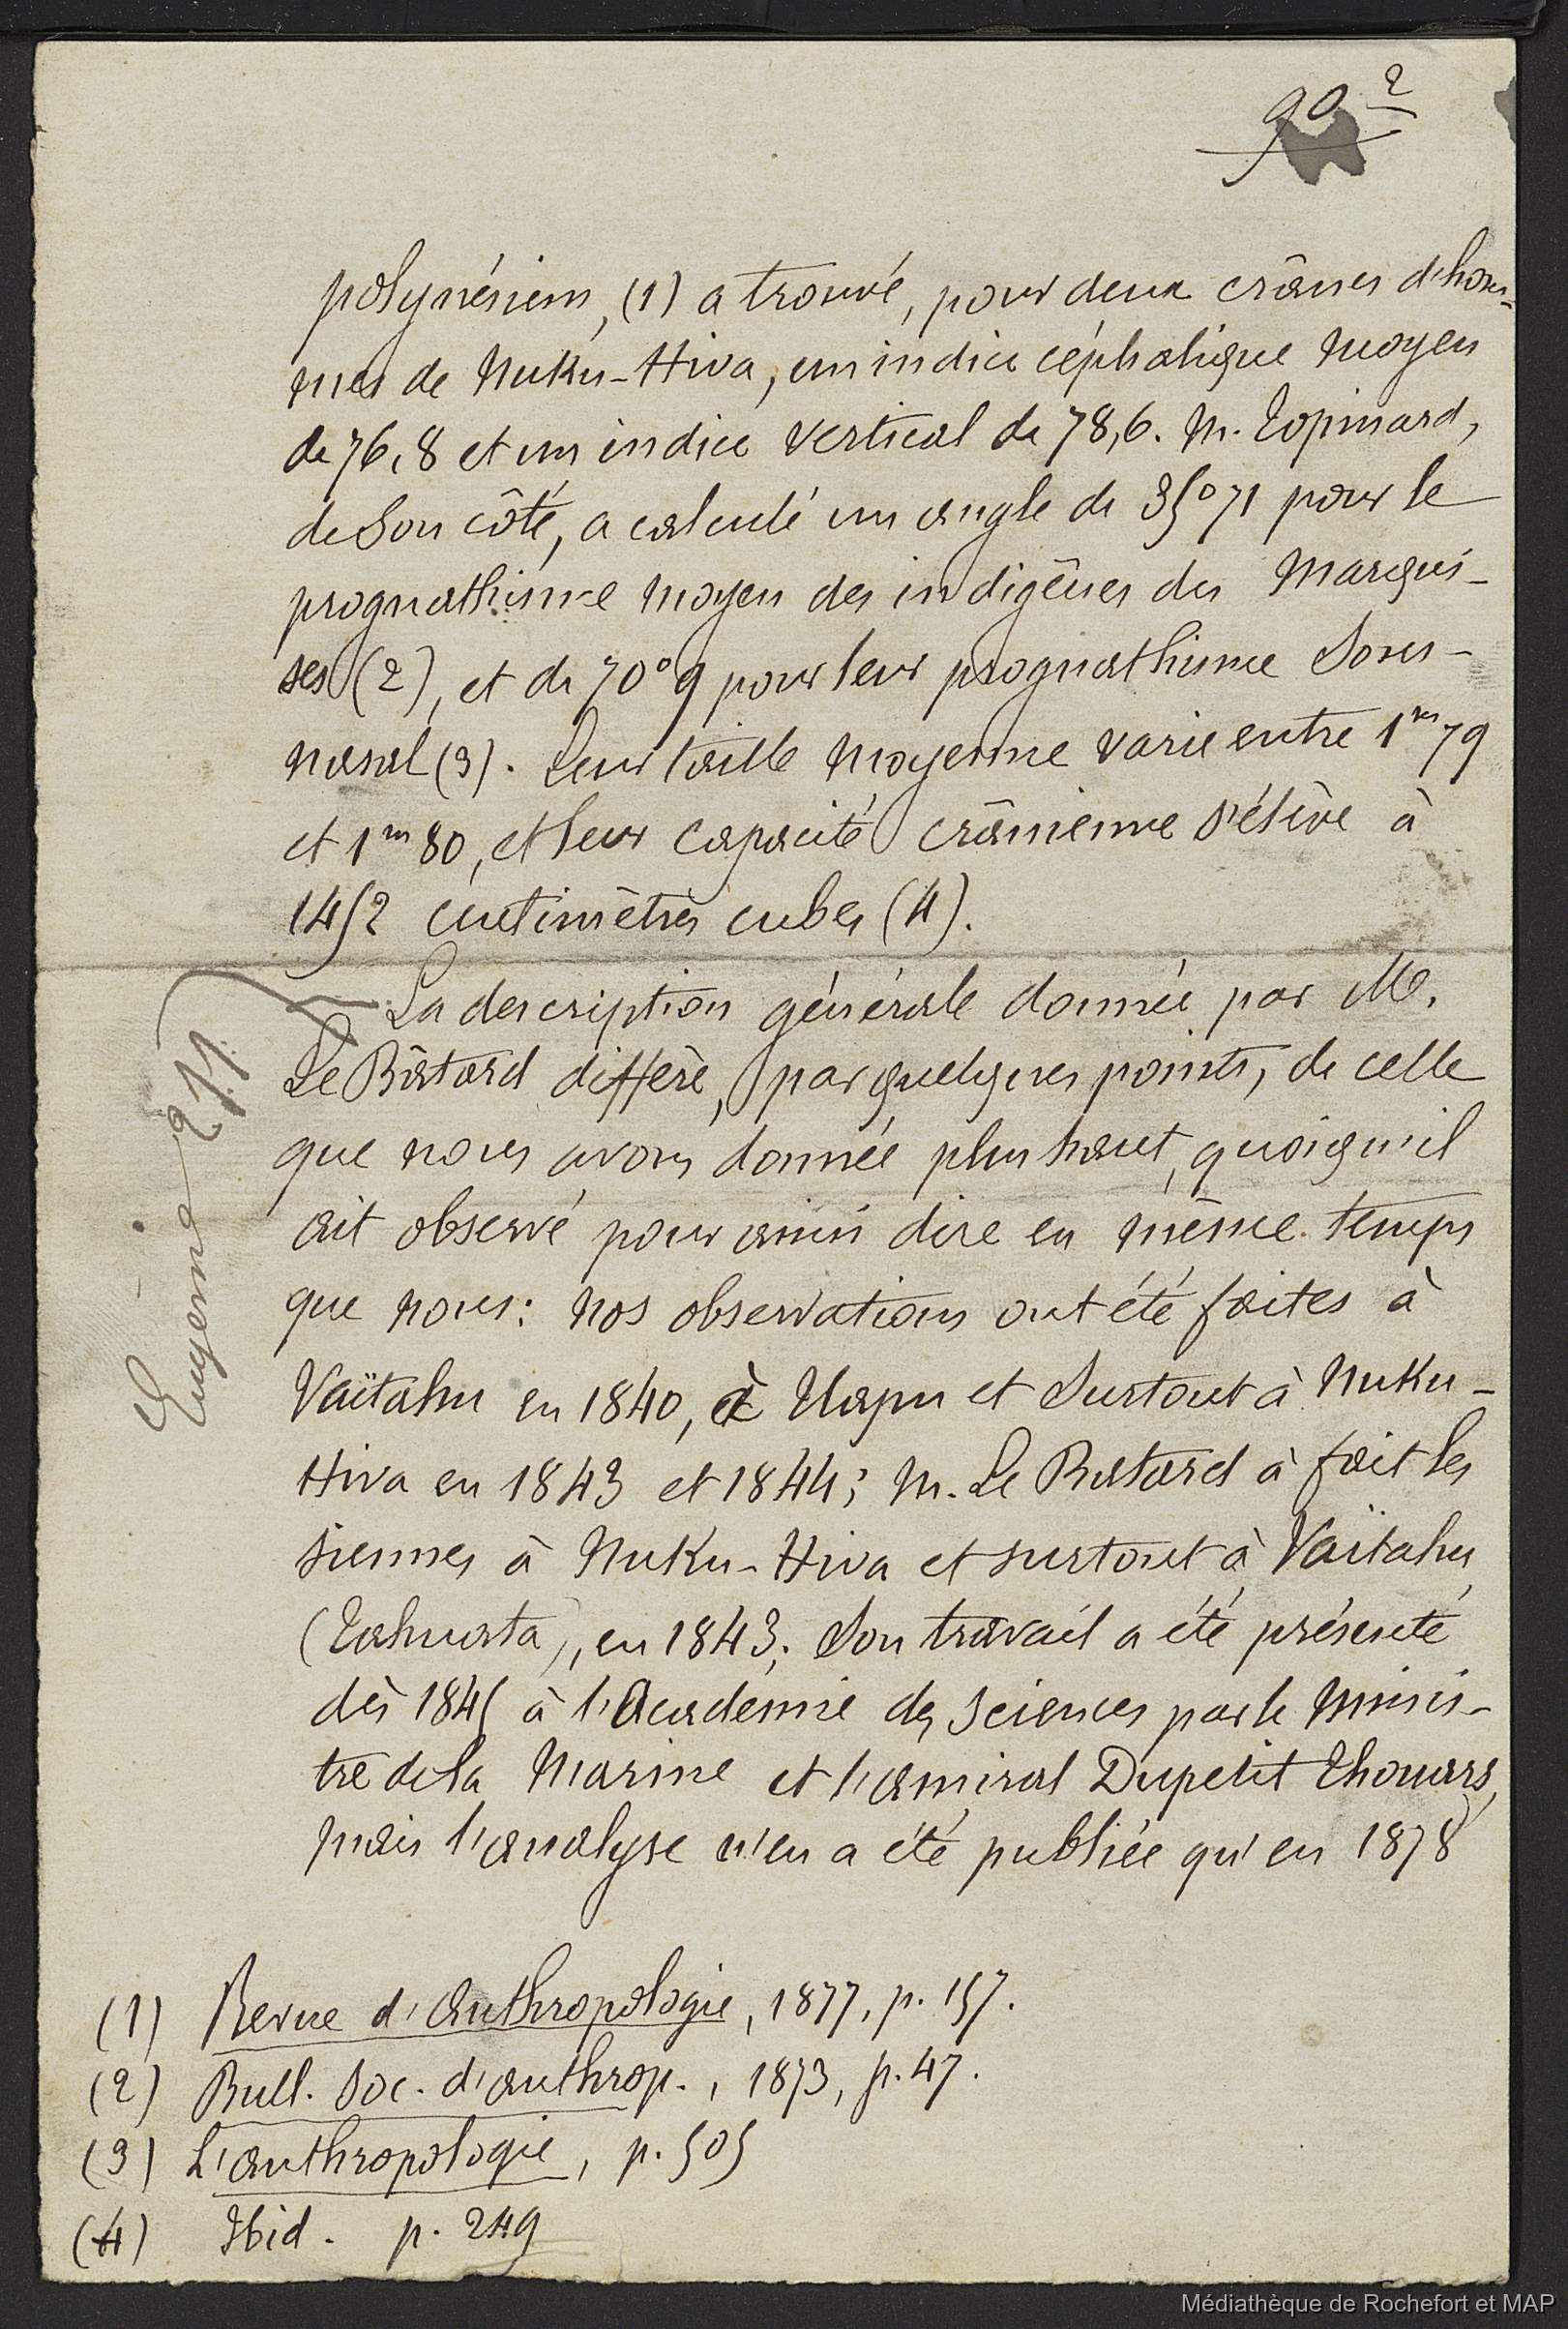 90 2
polynésiens, (1) a trouvé, pour deux crânes d'hom-
mes de Nuku-Hiva, un indice céphalique moyen
de 76,8 et un indice vertical de 78,6. M. Topinard,
de son côté, a calculé un angle de 35°71 pour le
prognathisme moyen des indigènes des Marqui-
ses (2), et de 70°9 pour leur prognathisme sous-
nasal (3). Leur taille moyenne varie entre 1m79
et 1m80, et leur capacité crânienne s'élève à
1452 centimètres cubes (4).
La description générale donnée par M.
Le Bâtard diffère, par quelques points, de celle
que nous avons donnée plus haut, quoiqu'il
ait observé pour ainsi dire en même temps
que nous: nos observations ont été faites à
Vaïtahu en 1840, à Uapu et surtout à Nuku-
Hiva en 1843 et 1844; M. Le Batard à fait les
siennes à Nuku-Hiva et surtout à Vaïtahu
(Tahuata), en 1843. Son travail a été présenté
dès 1845 à l'Académie des Sciences par le Minis-
tre de la Marine et l'amiral Dupetit Thouars,
mais l'analyse n'en a été publiée qu'en 1878
Eugénie 211
(1) Revue d'anthropologie, 1877, p. 157.
(2) Bull. Soc. d'anthrop., 1873, p. 47.
(3) L'anthropologie, p. 505
(4) Ibid. p. 249
Médiathèque de Rochefort et MAP